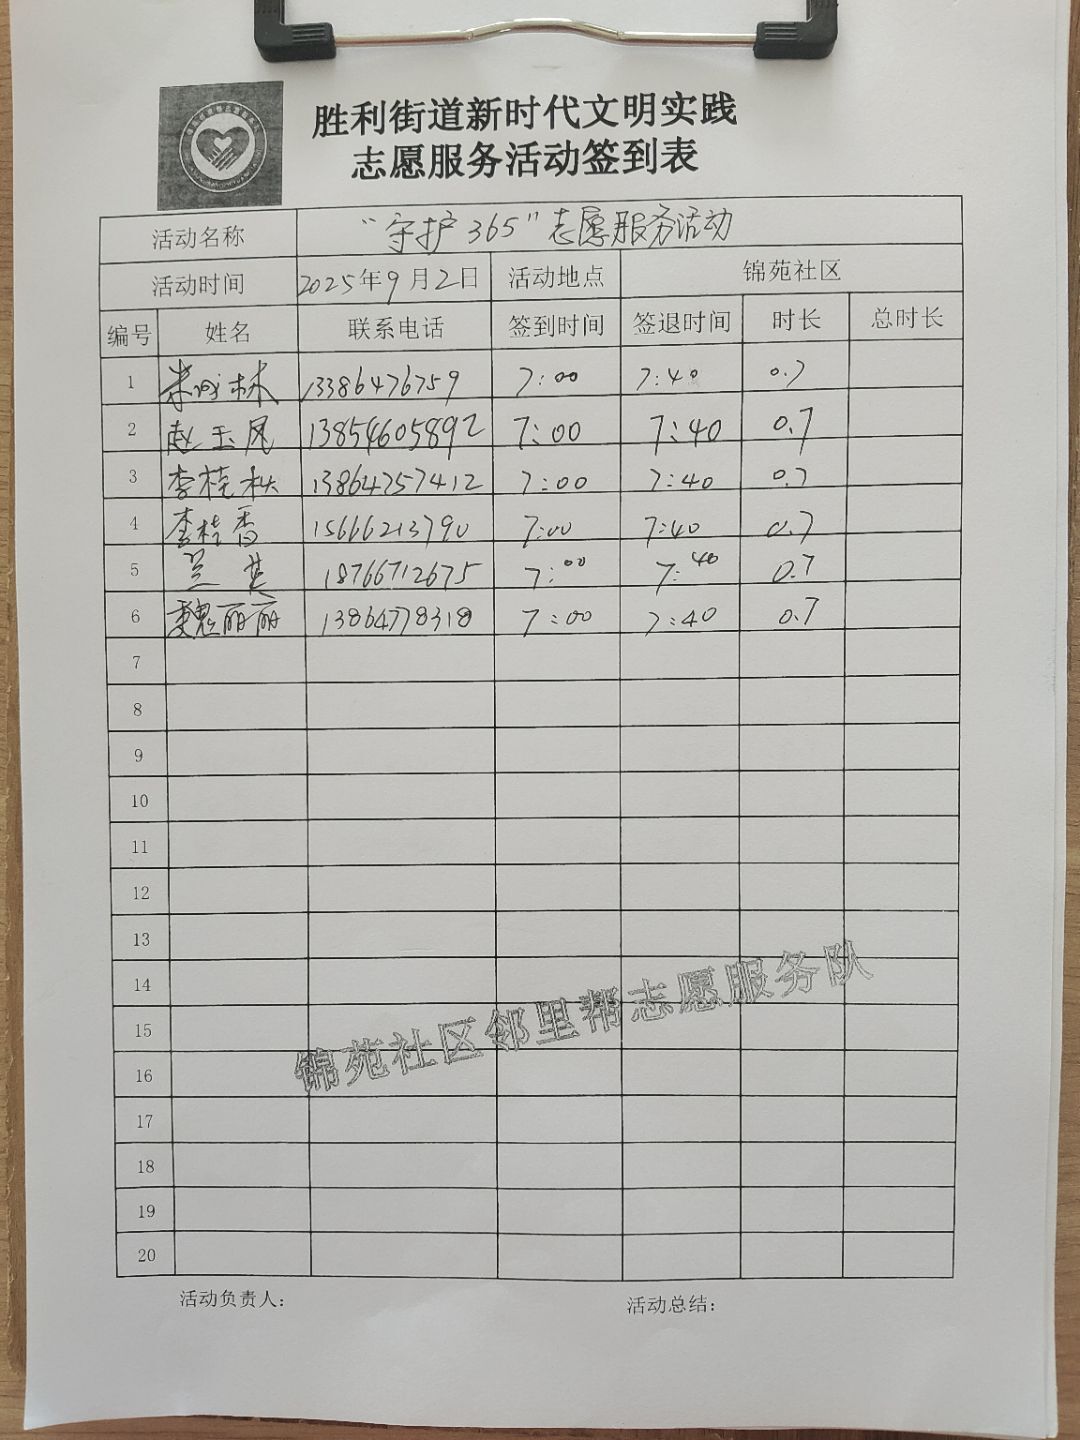 胜利街道新时代文明实践
志愿服务活动签到表
活动名称 “守护365”志愿服务活动
活动时间 2025年9月2日 活动地点 锦苑社区
编号 姓名 联系电话 签到时间 签退时间 时长 总时长
1 林 13386476759 7:00 7:40 0.7
2 赵玉凤 13854605892 7:00 7:40 0.7
3 李桂秋 13864757412 7:00 7:40 0.7
4 李桂香 15666213790 7:00 7:40 0.7
5 兰英 18766712675 7:00 7:40 0.7
6 魏丽丽 13864778318 7:00 7:40 0.7
7
8
9
10
11
12
13
14
15
16
17
18
19
20
锦苑社区邻里帮志愿服务队
活动负责人： 活动总结：